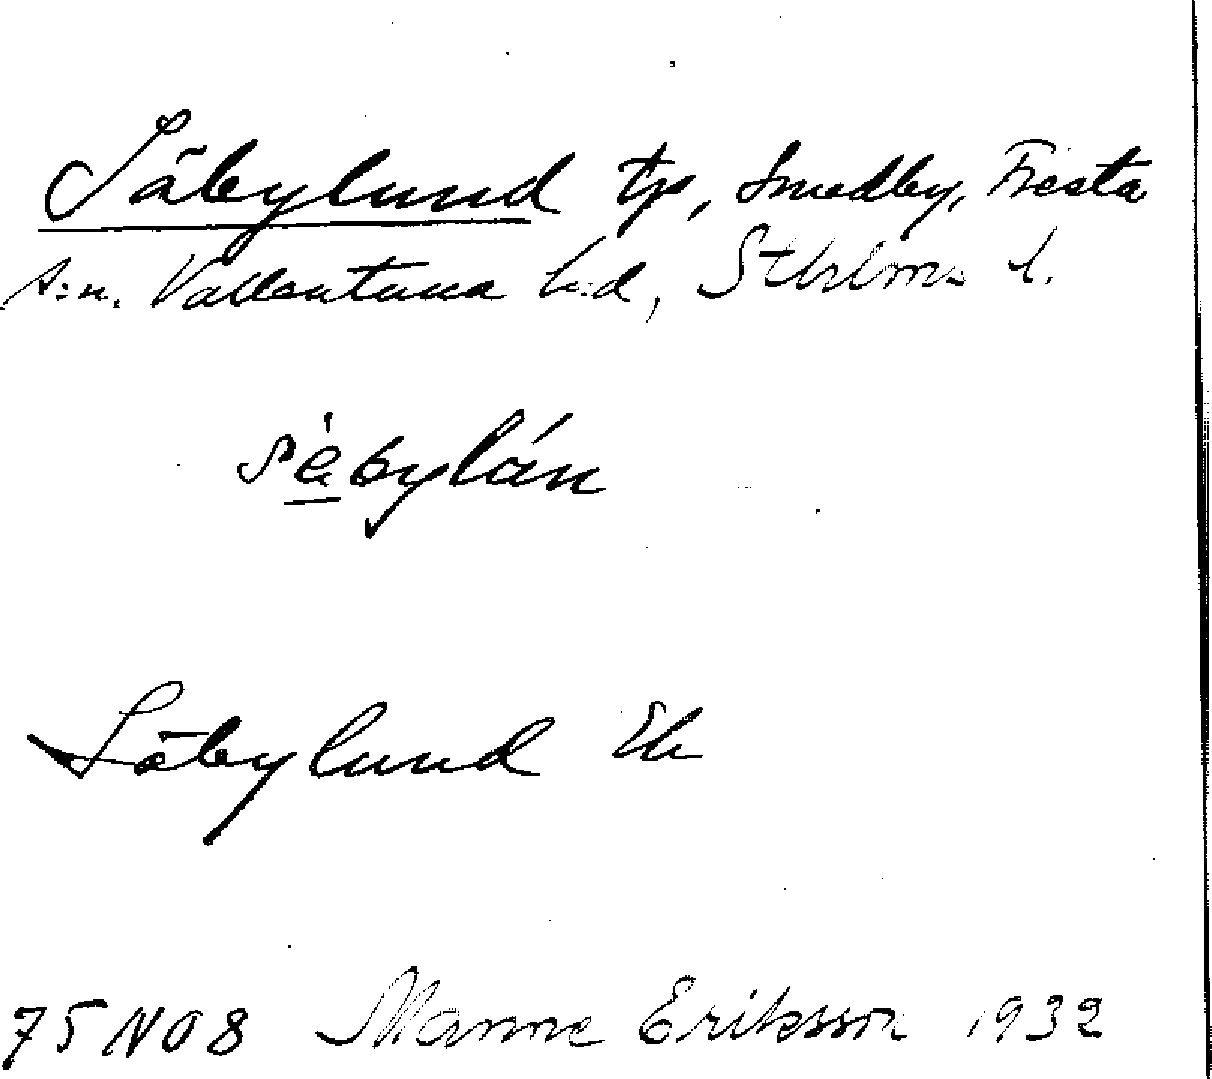 Säbylund tp, Smedby, Fresta
s:n. Vallentuna h:d, Sthlms l.
sèbylán
Säbylund Ek
75 NO 8 Manne Eriksson 1932